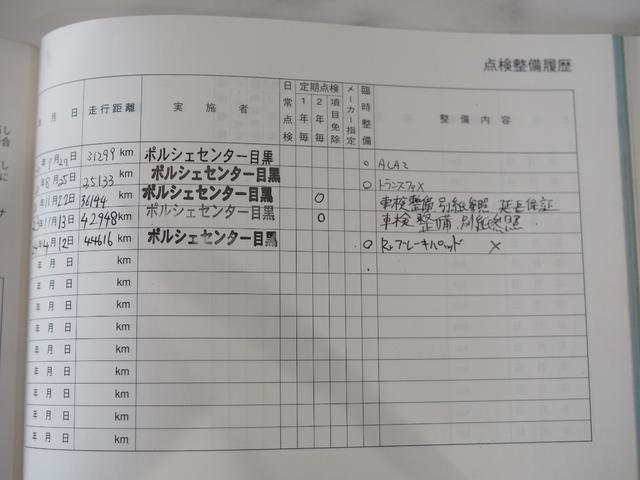 点検整備履歴
年 月 日 走行距離 実施者 日常点検 定期点検 1年毎 2年毎 項目免除 メーカー指定 臨時整備 整備内容
年9月29日 31299 km ボルシェセンター目黒 ○ ALA2
年8月25日 25133 km ボルシェセンター目黒 ○
年11月22日 36144 km ボルシェセンター目黒 ○ 車検整備 別紙参照 延長保証
年11月13日 42948 km ボルシェセンター目黒 ○ 車検整備 別紙参照
年4月12日 44616 km ボルシェセンター目黒 ○ Rrブレーキパッド ×
年 月 日 km
年 月 日 km
年 月 日 km
年 月 日 km
年 月 日 km
年 月 日 km
年 月 日 km
年 月 日 km
年 月 日 km